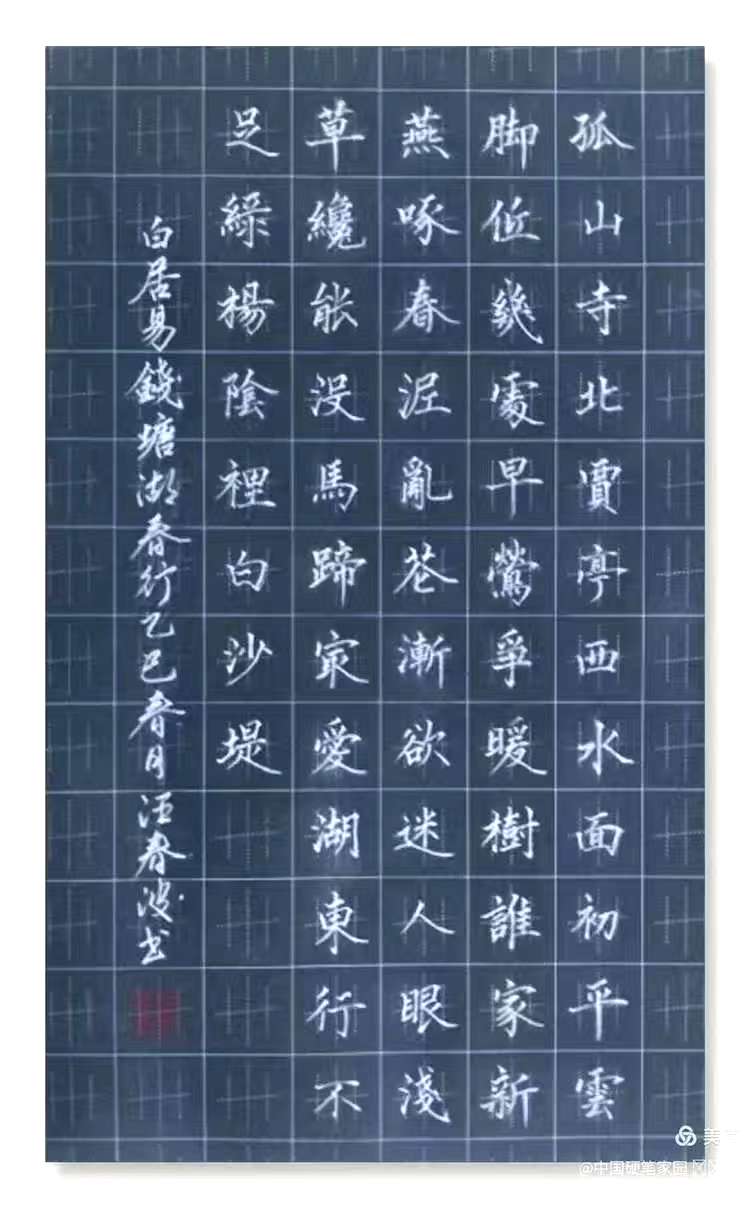 孤山寺北賈亭西水面初平雲
脚低幾處早鶯爭暖樹誰家新
燕啄春泥亂花漸欲迷人眼淺
草纔能没馬蹄㝡愛湖東行不
足綠楊陰裡白沙堤
白居易錢塘湖春行乙巳春月汪春波书
美
@中国硬笔家园